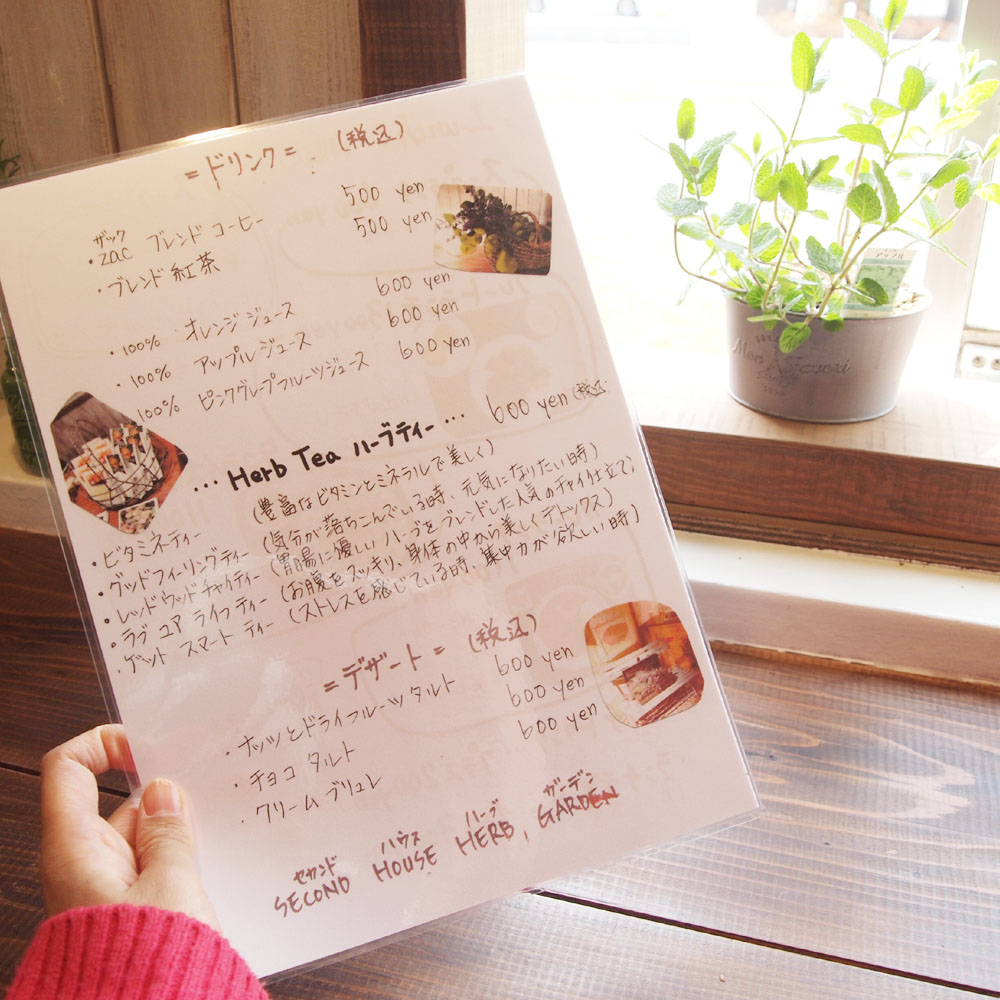 =ドリンク= (税込)
ザック
・zac ブレンド コーヒー 500 yen
・ブレンド 紅茶 500 yen
・100% オレンジジュース 600 yen
・100% アップルジュース 600 yen
100% ピンクグレープフルーツジュース 600 yen
... Herb Tea ハーブティー ... 600 yen (税込
・ビタミネティー (豊富なビタミンとミネラルで美しく)
・グッドフィーリングティー (気分が落ちこんでいる時、元気になりたい時)
・レッドウッドチャイティー (胃腸に優しいハーブをブレンドした人気のチャイ仕立て)
・ラブ ユア ライフティー (お腹をスッキリ、身体の中から美しくデトックス)
・ゲット スマート ティー (ストレスを感じている時、集中力が欲しい時)
=デザート= (税込)
・ナッツとドライフルーツタルト 600 yen
・チョコ タルト 600 yen
・クリームブリュレ 600 yen
セカンド ハウス ハーブ ガーデン
SECOND HOUSE HERB, GARDEN
アップル